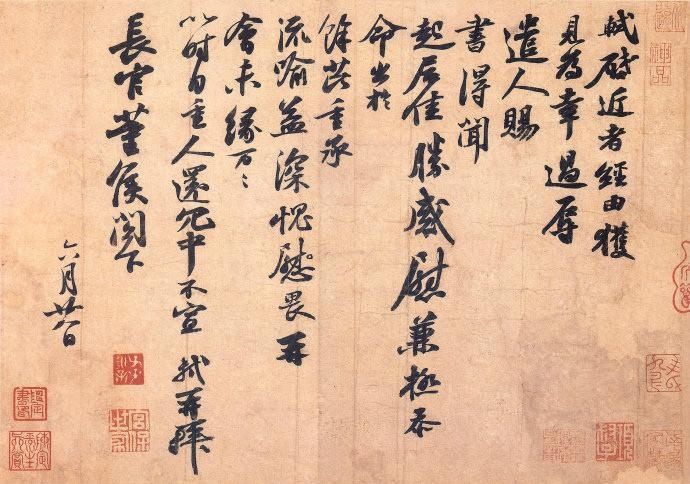 軾啟近者經由獲
見為幸過辱
遣人賜
書得聞
起居佳勝感慰兼極忝
命出於
餘芘重承
流喻益深愧慰畏再
會未緣万〻
以時自重人還冗中不宣 軾再拜
長官董侯閣下
六月廿八日
神品